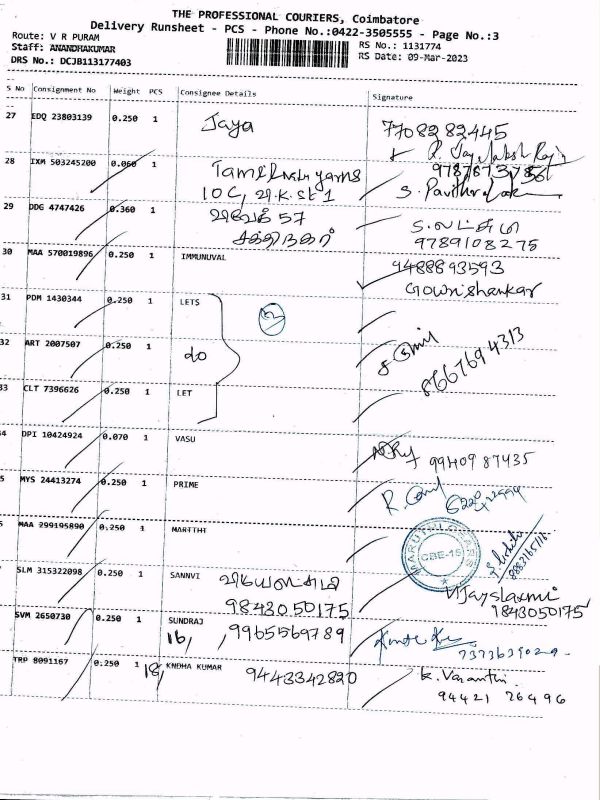 THE PROFESSIONAL COURIERS, Coimbatore
Delivery Runsheet - PCS - Phone No.:0422-3505555 - Page No.:3
Route: V R PURAM
Staff: ANANDHAKUMAR
DRS No.: DCJB113177403
RS No.: 1131774
RS Date: 09-Mar-2023
S No Consignment No Weight PCS Consignee Details Signature
27 EDQ 23803139 0.250 1 Jaya 7708282445
28 IXM 503245200 0.060 1 Tamilnadu yarns
10 C, வி.க. st 1
29 DDG 4747426 0.360 1 விவேக் 57
சக்திநகர்
S. லட்சுமி
9789108275
30 MAA 570019896 0.250 1 IMMUNUVAL 9488893593
Gowrishankar
31 PDM 1430344 0.250 1 LETS
32 ART 2007507 0.250 1 do
8667694313
33 CLT 7396626 0.250 1 LET
34 DPI 10424924 0.070 1 VASU 9940987435
5 MYS 24413274 0.250 1 PRIME
MAA 299195890 0.250 1 MARTTHI
CBE-15
SLM 315322098 0.250 1 SANNVI விஜயலட்சுமி
9843050175
Vijayslaxmi
9843050175
SVM 2650730 0.250 1 SUNDRAJ
16, 9965569789
TRP 8091167 0.250 1 18, KNDHA KUMAR 9443342820
K. Vasanthi
94421 26496